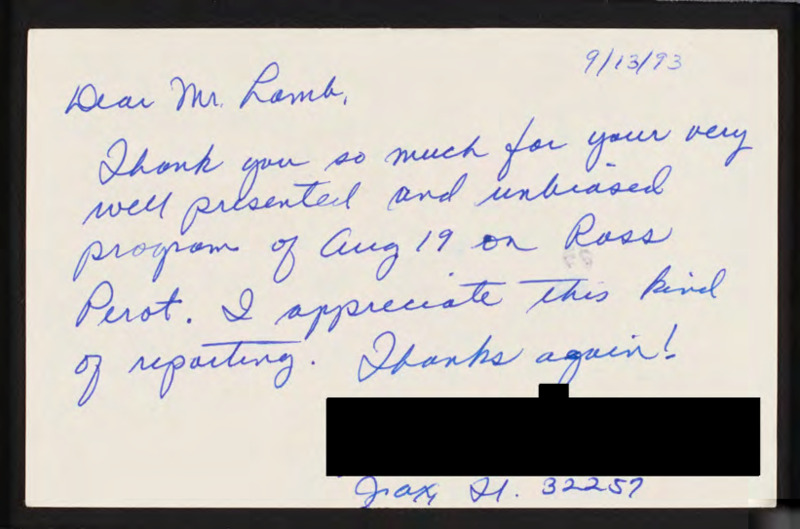 9/13/93
Dear Mr. Lamb,
Thank you so much for your very
well presented and unbiased
program of Aug 19 on Ross
Perot. I appreciate this kind
of reporting. Thanks again!
Jax, Fl. 32257